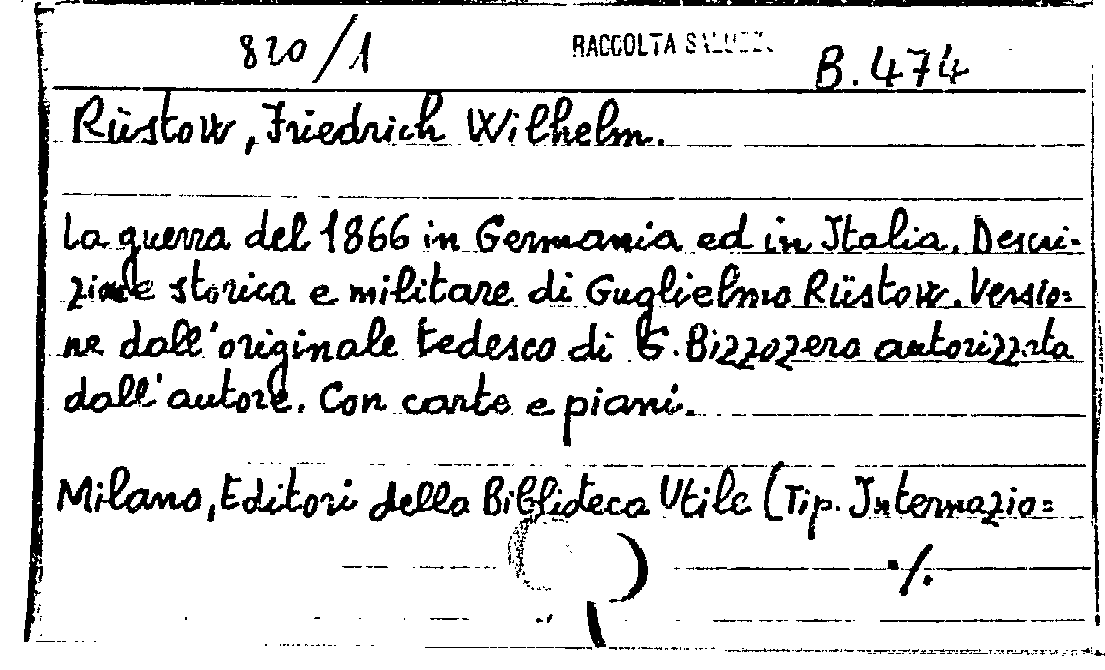 820/1 RACCOLTA SALUZZO B.474
Rüstow, Friedrich Wilhelm.
La guerra del 1866 in Germania ed in Italia. Descri-
zione storica e militare di Guglielmo Rüstow. Versio=
ne dall'originale tedesco di G. Bizzozero autorizzata
dall'autore. Con carte e piani.
Milano, Editori della Biblioteca Utile (Tip. Internazio=
./.